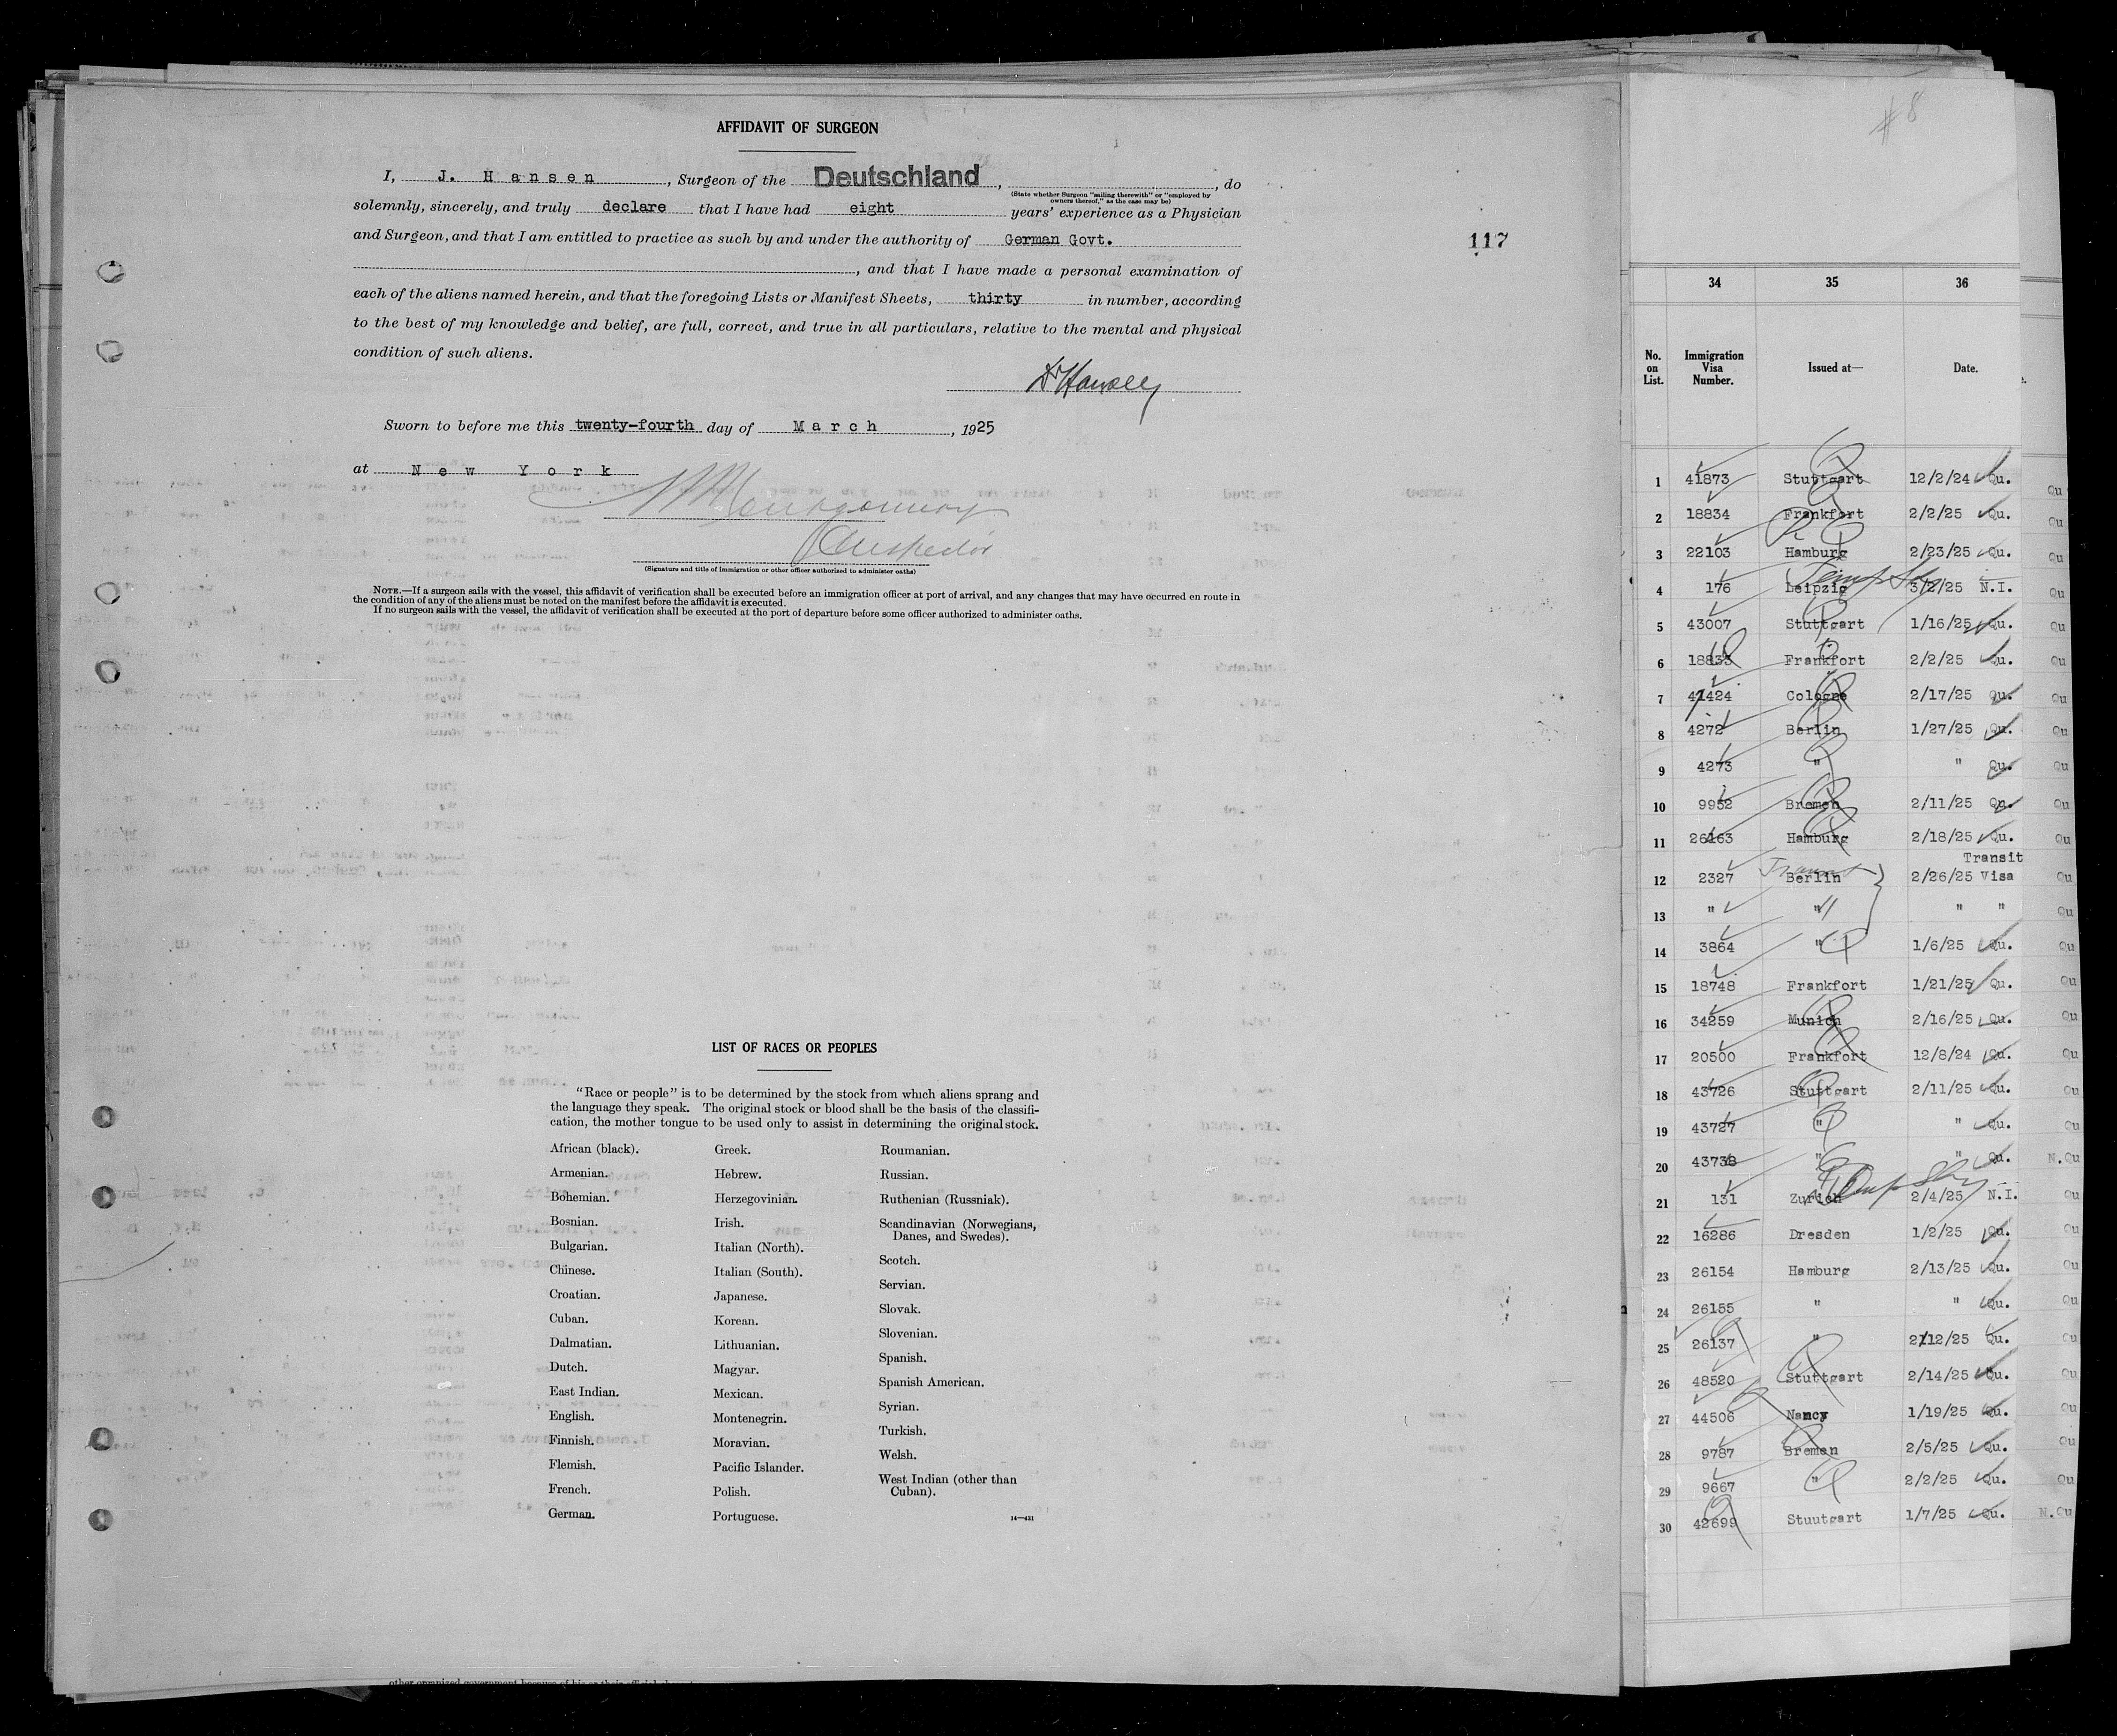 AFFIDAVIT OF SURGEON
I, J. Hansen, Surgeon of the Deutschland, , do
(State whether Surgeon "sailing therewith" or "employed by
owners thereof," as the case may be)
solemnly, sincerely, and truly declare that I have had eight years' experience as a Physician
and Surgeon, and that I am entitled to practice as such by and under the authority of German Govt.
, and that I have made a personal examination of
each of the aliens named herein, and that the foregoing Lists or Manifest Sheets, thirty in number, according
to the best of my knowledge and belief, are full, correct, and true in all particulars, relative to the mental and physical
condition of such aliens.
Sworn to before me this twenty-fourth day of March, 1925
at New York
Montgomery
Inspector
(Signature and title of immigration or other officer authorized to administer oaths)
NOTE.—If a surgeon sails with the vessel, this affidavit of verification shall be executed before an immigration officer at port of arrival, and any changes that may have occurred en route in
the condition of any of the aliens must be noted on the manifest before the affidavit is executed.
If no surgeon sails with the vessel, the affidavit of verification shall be executed at the port of departure before some officer authorized to administer oaths.
117
LIST OF RACES OR PEOPLES
"Race or people" is to be determined by the stock from which aliens sprang and
the language they speak. The original stock or blood shall be the basis of the classifi-
cation, the mother tongue to be used only to assist in determining the original stock.
African (black).
Armenian.
Bohemian.
Bosnian.
Bulgarian.
Chinese.
Croatian.
Cuban.
Dalmatian.
Dutch.
East Indian.
English.
Finnish.
Flemish.
French.
German.
Greek.
Hebrew.
Herzegovinian.
Irish.
Italian (North).
Italian (South).
Japanese.
Korean.
Lithuanian.
Magyar.
Mexican.
Montenegrin.
Moravian.
Pacific Islander.
Polish.
Portuguese.
Roumanian.
Russian.
Ruthenian (Russniak).
Scandinavian (Norwegians,
Danes, and Swedes).
Scotch.
Servian.
Slovak.
Slovenian.
Spanish.
Spanish American.
Syrian.
Turkish.
Welsh.
West Indian (other than
Cuban).
14—431
#8
34 35 36
No. on List. Immigration Visa Number. Issued at— Date.
1 41873 Stuttgart 12/2/24 Qu.
2 18834 Frankfort 2/2/25 Qu.
3 22103 Hamburg 2/23/25 Qu.
4 176 Leipzig 3/2/25 N.I.
5 43007 Stuttgart 1/16/25 Qu.
6 18833 Frankfort 2/2/25 Qu.
7 41424 Cologne 2/17/25 Qu.
8 4272 Berlin 1/27/25 Qu.
9 4273 " " Qu.
10 9952 Bremen 2/11/25 Qu.
11 26163 Hamburg 2/18/25 Qu.
Transit
12 2327 Berlin 2/26/25 Visa
13 " " " "
14 3864 " 1/6/25 Qu.
15 18748 Frankfort 1/21/25 Qu.
16 34259 Munich 2/16/25 Qu.
17 20500 Frankfort 12/8/24 Qu.
18 43726 Stuttgart 2/11/25 Qu.
19 43727 " " Qu.
20 43738 " " Qu.
21 131 Zurich 2/4/25 N.I.
22 16286 Dresden 1/2/25 Qu.
23 26154 Hamburg 2/13/25 Qu.
24 26155 " " Qu.
25 26137 " 2/12/25 Qu.
26 48520 Stuttgart 2/14/25 Qu.
27 44506 Nancy 1/19/25 Qu.
28 9787 Bremen 2/5/25 Qu.
29 9667 " 2/2/25 Qu.
30 42699 Stuutgart 1/7/25 Qu.